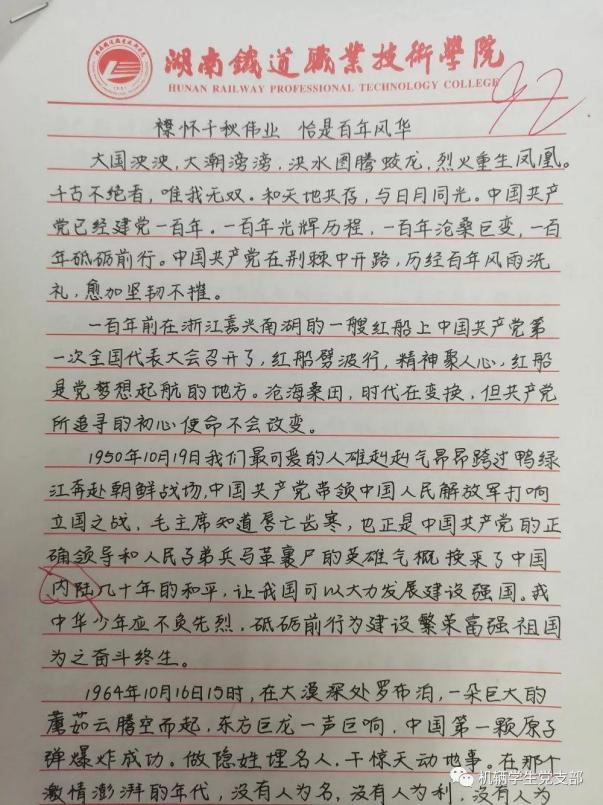 湖南鐵道職業技術學院
HUNAN RAILWAY PROFESSIONAL TECHNOLOGY COLLEGE
92
襟怀千秋伟业 恰是百年风华
大国泱泱,大潮滂滂,洪水图腾蛟龙,烈火重生凤凰。
千古不绝者,唯我无双。和天地共存,与日月同光。中国共产
党已经建党一百年。一百年光辉历程,一百年沧桑巨变,一百
年砥砺前行。中国共产党在荆棘中开路,历经百年风雨洗
礼,愈加坚韧不摧。
一百年前在浙江嘉兴南湖的一艘红船上中国共产党第
一次全国代表大会召开了,红船劈波行,精神聚人心,红船
是党梦想起航的地方。沧海桑田,时代在变换,但共产党
所追寻的初心使命不会改变。
1950年10月19日我们最可爱的人雄赳赳气昂昂跨过鸭绿
江奔赴朝鲜战场,中国共产党带领中国人民解放军打响
立国之战,毛主席知道唇亡齿寒,也正是中国共产党的正
确领导和人民子弟兵马革裹尸的英雄气概换来了中国
内陆几十年的和平,让我国可以大力发展建设强国。我
中华少年应不负先烈,砥砺前行为建设繁荣富强祖国
为之奋斗终生。
1964年10月16日15时,在大漠深处罗布泊,一朵巨大的
蘑茹云腾空而起,东方巨龙一声巨响,中国第一颗原子
弹爆炸成功。做隐姓埋名人,干惊天动地事。在那个
激情澎湃的年代,没有人为名,没有人为利,没有人为
机辆学生党支部